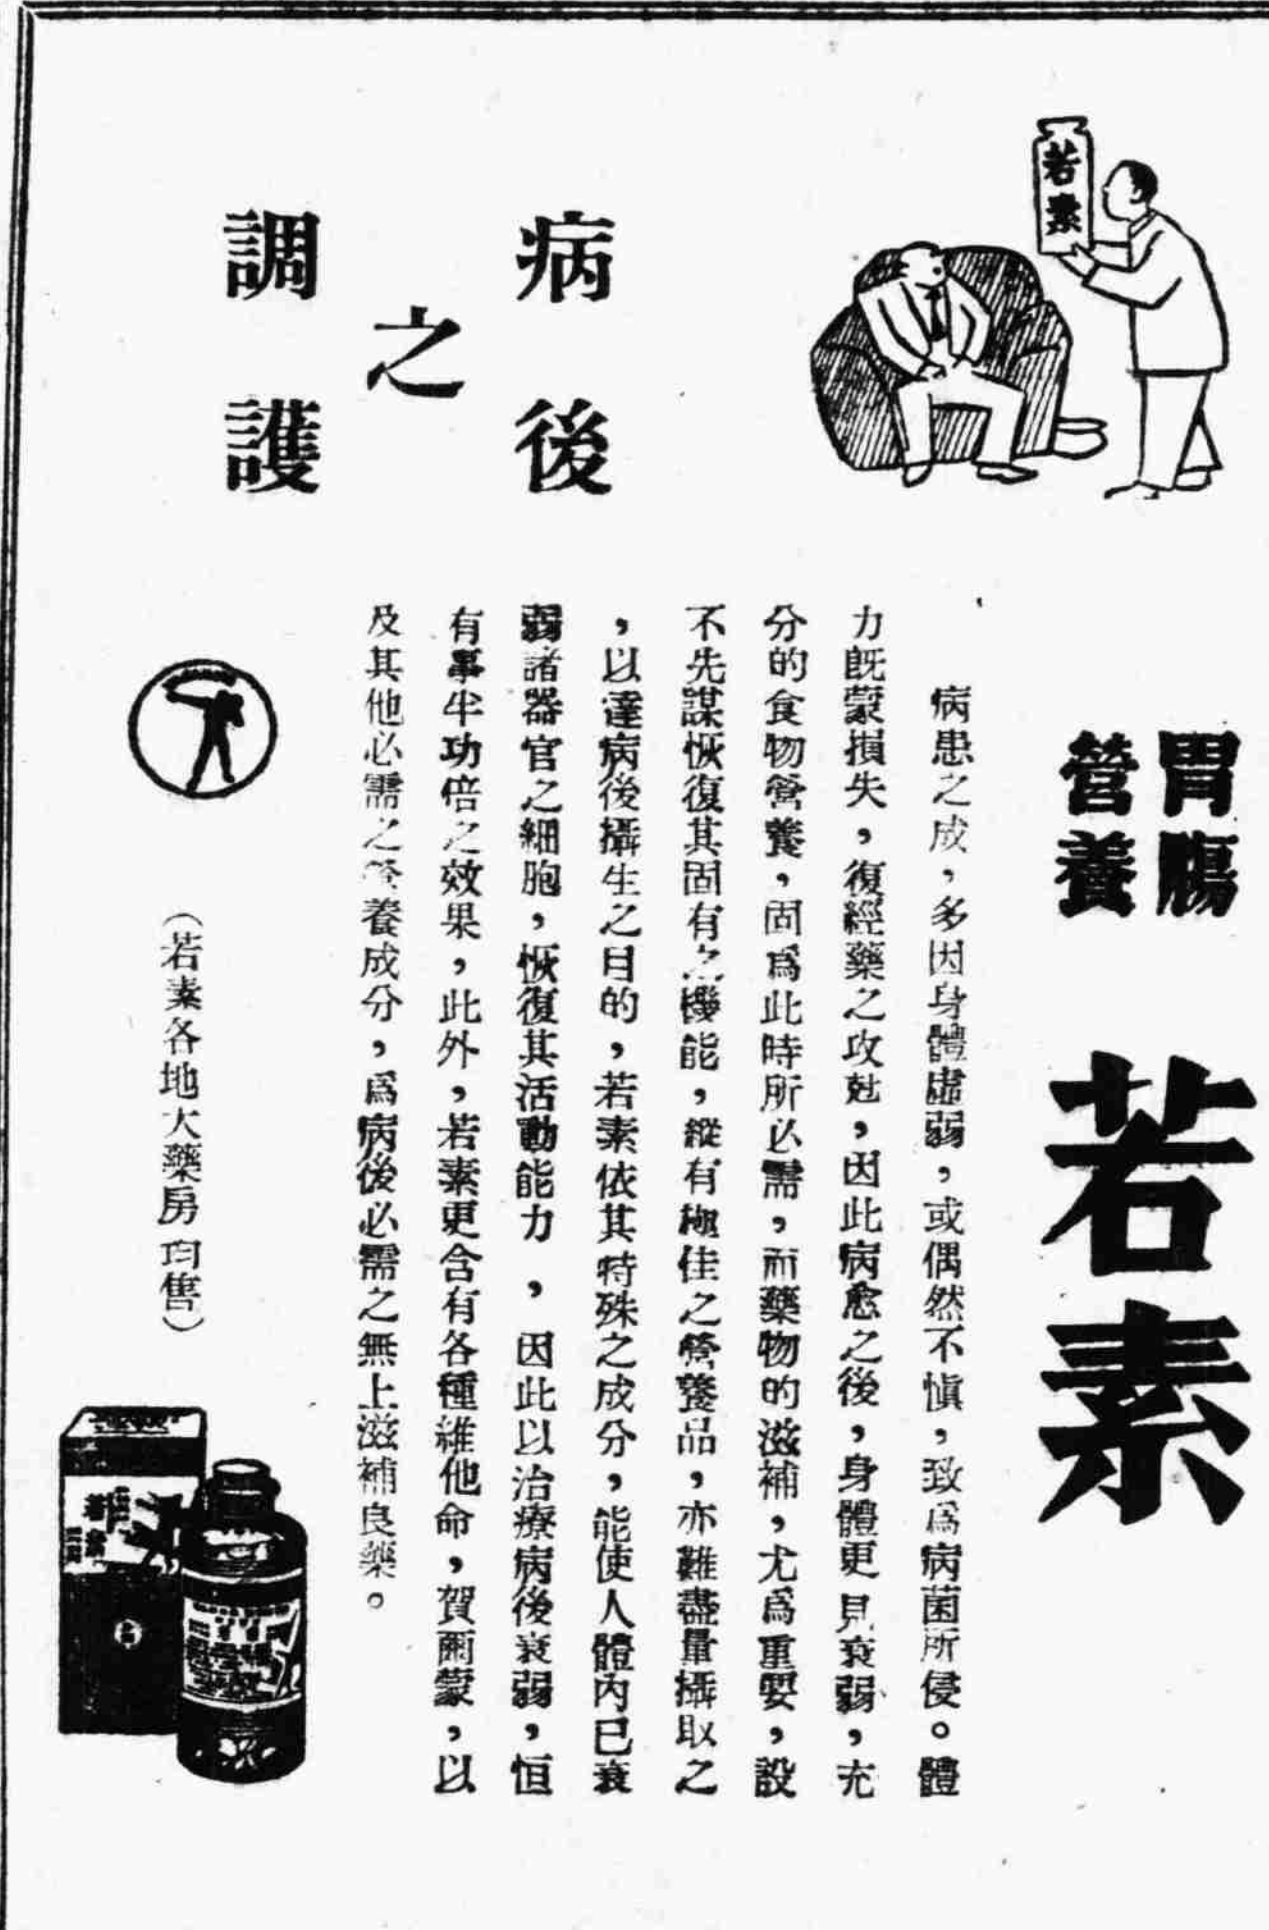 若素
胃腸
營養
若素
病後
之
調護
病患之成，多因身體虛弱，或偶然不愼，致爲病菌所侵。體
力旣蒙損失，復經藥之攻尅，因此病愈之後，身體更見衰弱，充
分的食物營養，固爲此時所必需，而藥物的滋補，尤爲重要，設
不先謀恢復其固有之機能，縱有極佳之營養品，亦難盡量攝取之
，以達病後攝生之目的，若素依其特殊之成分，能使人體內已衰
弱諸器官之細胞，恢復其活動能力，因此以治療病後衰弱，恒
有事半功倍之效果，此外，若素更含有各種維他命，賀爾蒙，以
及其他必需之營養成分，爲病後必需之無上滋補良藥。
（若素各地大藥房均售）
若素